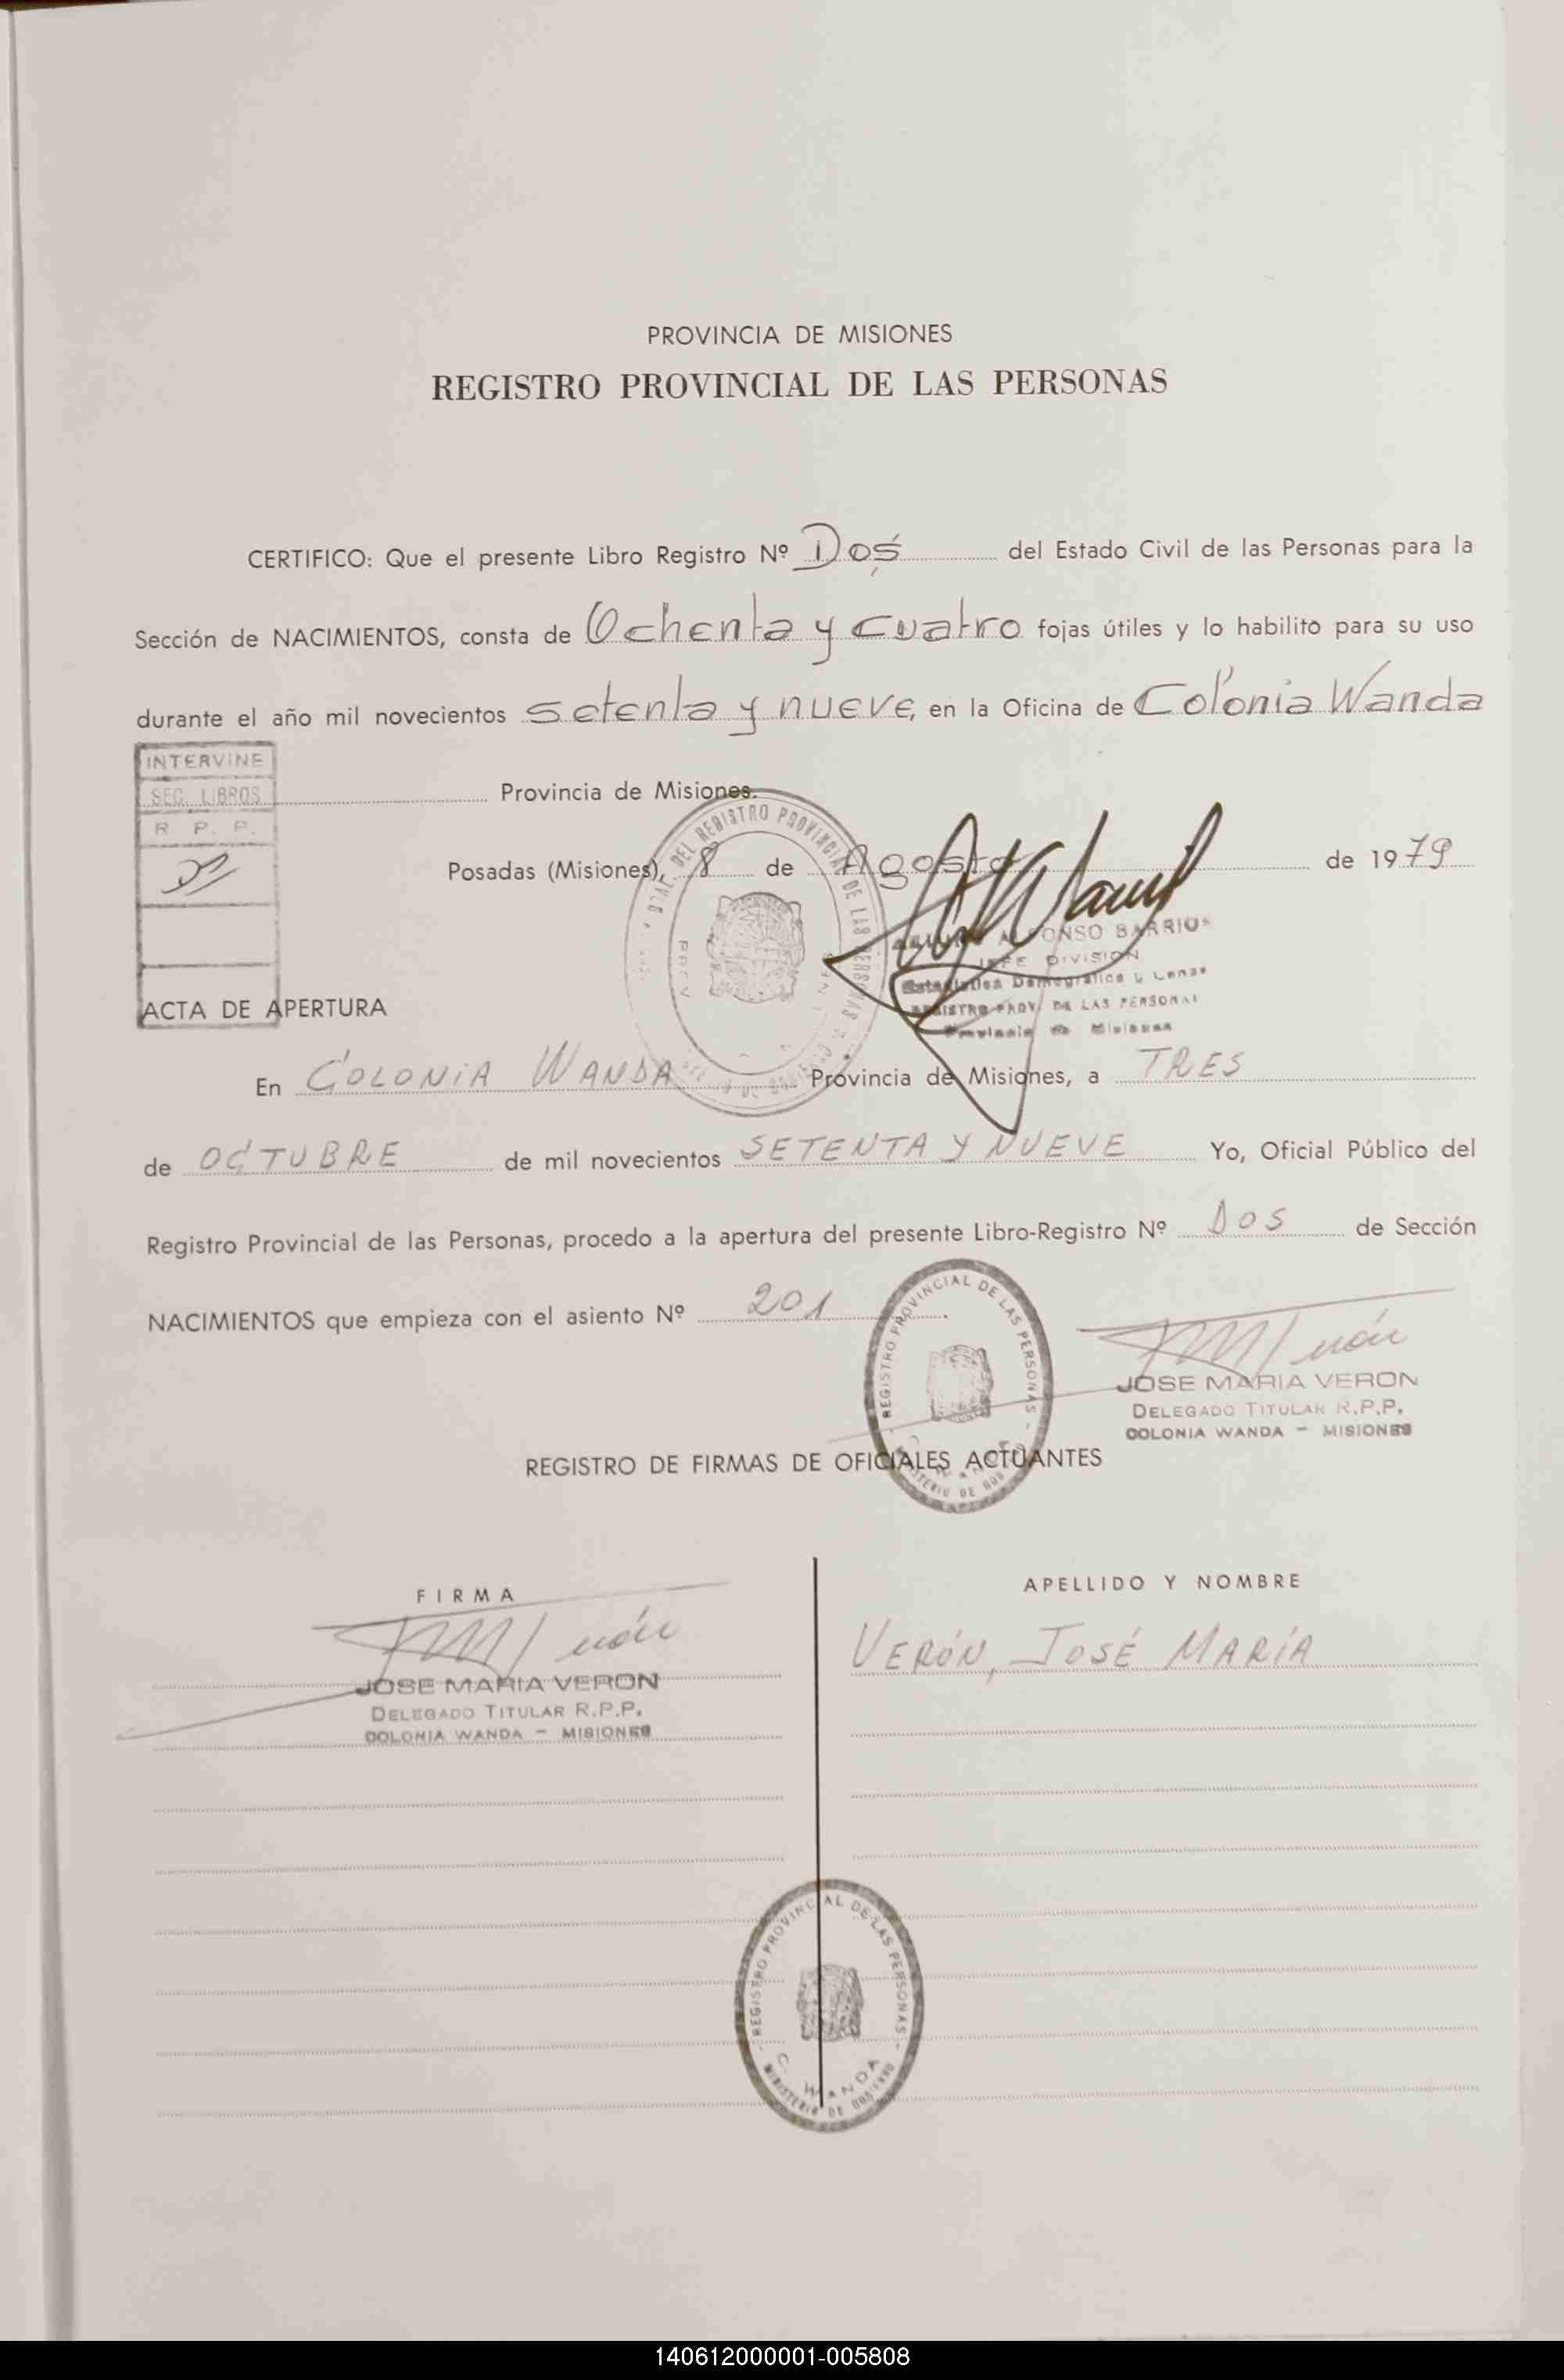 PROVINCIA DE MISIONES
REGISTRO PROVINCIAL DE LAS PERSONAS
CERTIFICO: Que el presente Libro Registro Nº Dos del Estado Civil de las Personas para la
Sección de NACIMIENTOS, consta de Ochenta y cuatro fojas útiles y lo habilito para su uso
durante el año mil novecientos setenta y nueve, en la Oficina de Colonia Wanda
INTERVINE
SEC. LIBROS
R. P. P.
Provincia de Misiones.
Posadas (Misiones), 8 de Agosto de 1979
DEL REGISTRO PROVINCIAL DE LAS PERSONAS
ALFONSO BARRIOS
JEFE DIVISION
Estadistica Demografica y Censo
REGISTRO PROV. DE LAS PERSONAS
Provincia de Misiones
ACTA DE APERTURA
En COLONIA WANDA Provincia de Misiones, a TRES
de OCTUBRE de mil novecientos SETENTA Y NUEVE Yo, Oficial Público del
Registro Provincial de las Personas, procedo a la apertura del presente Libro-Registro Nº DOS de Sección
NACIMIENTOS que empieza con el asiento Nº 201.
REGISTRO PROVINCIAL DE LAS PERSONAS
MINISTERIO DE GOB
JOSE MARIA VERON
DELEGADO TITULAR R.P.P.
COLONIA WANDA - MISIONES
REGISTRO DE FIRMAS DE OFICIALES ACTUANTES
FIRMA
APELLIDO Y NOMBRE
VERÓN, JOSÉ MARÍA
JOSE MARIA VERON
DELEGADO TITULAR R.P.P.
COLONIA WANDA - MISIONES
REGISTRO PROVINCIAL DE LAS PERSONAS
C. WANDA
MINISTERIO DE GOBIERNO
140612000001-005808